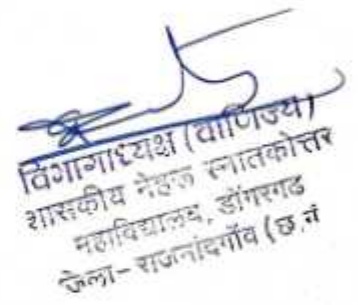 विभागाध्यक्ष (वाणिज्य)
शासकीय नेहरू स्नातकोत्तर
महाविद्यालय, डोंगरगढ
जिला- राजनांदगाँव (छ.ग